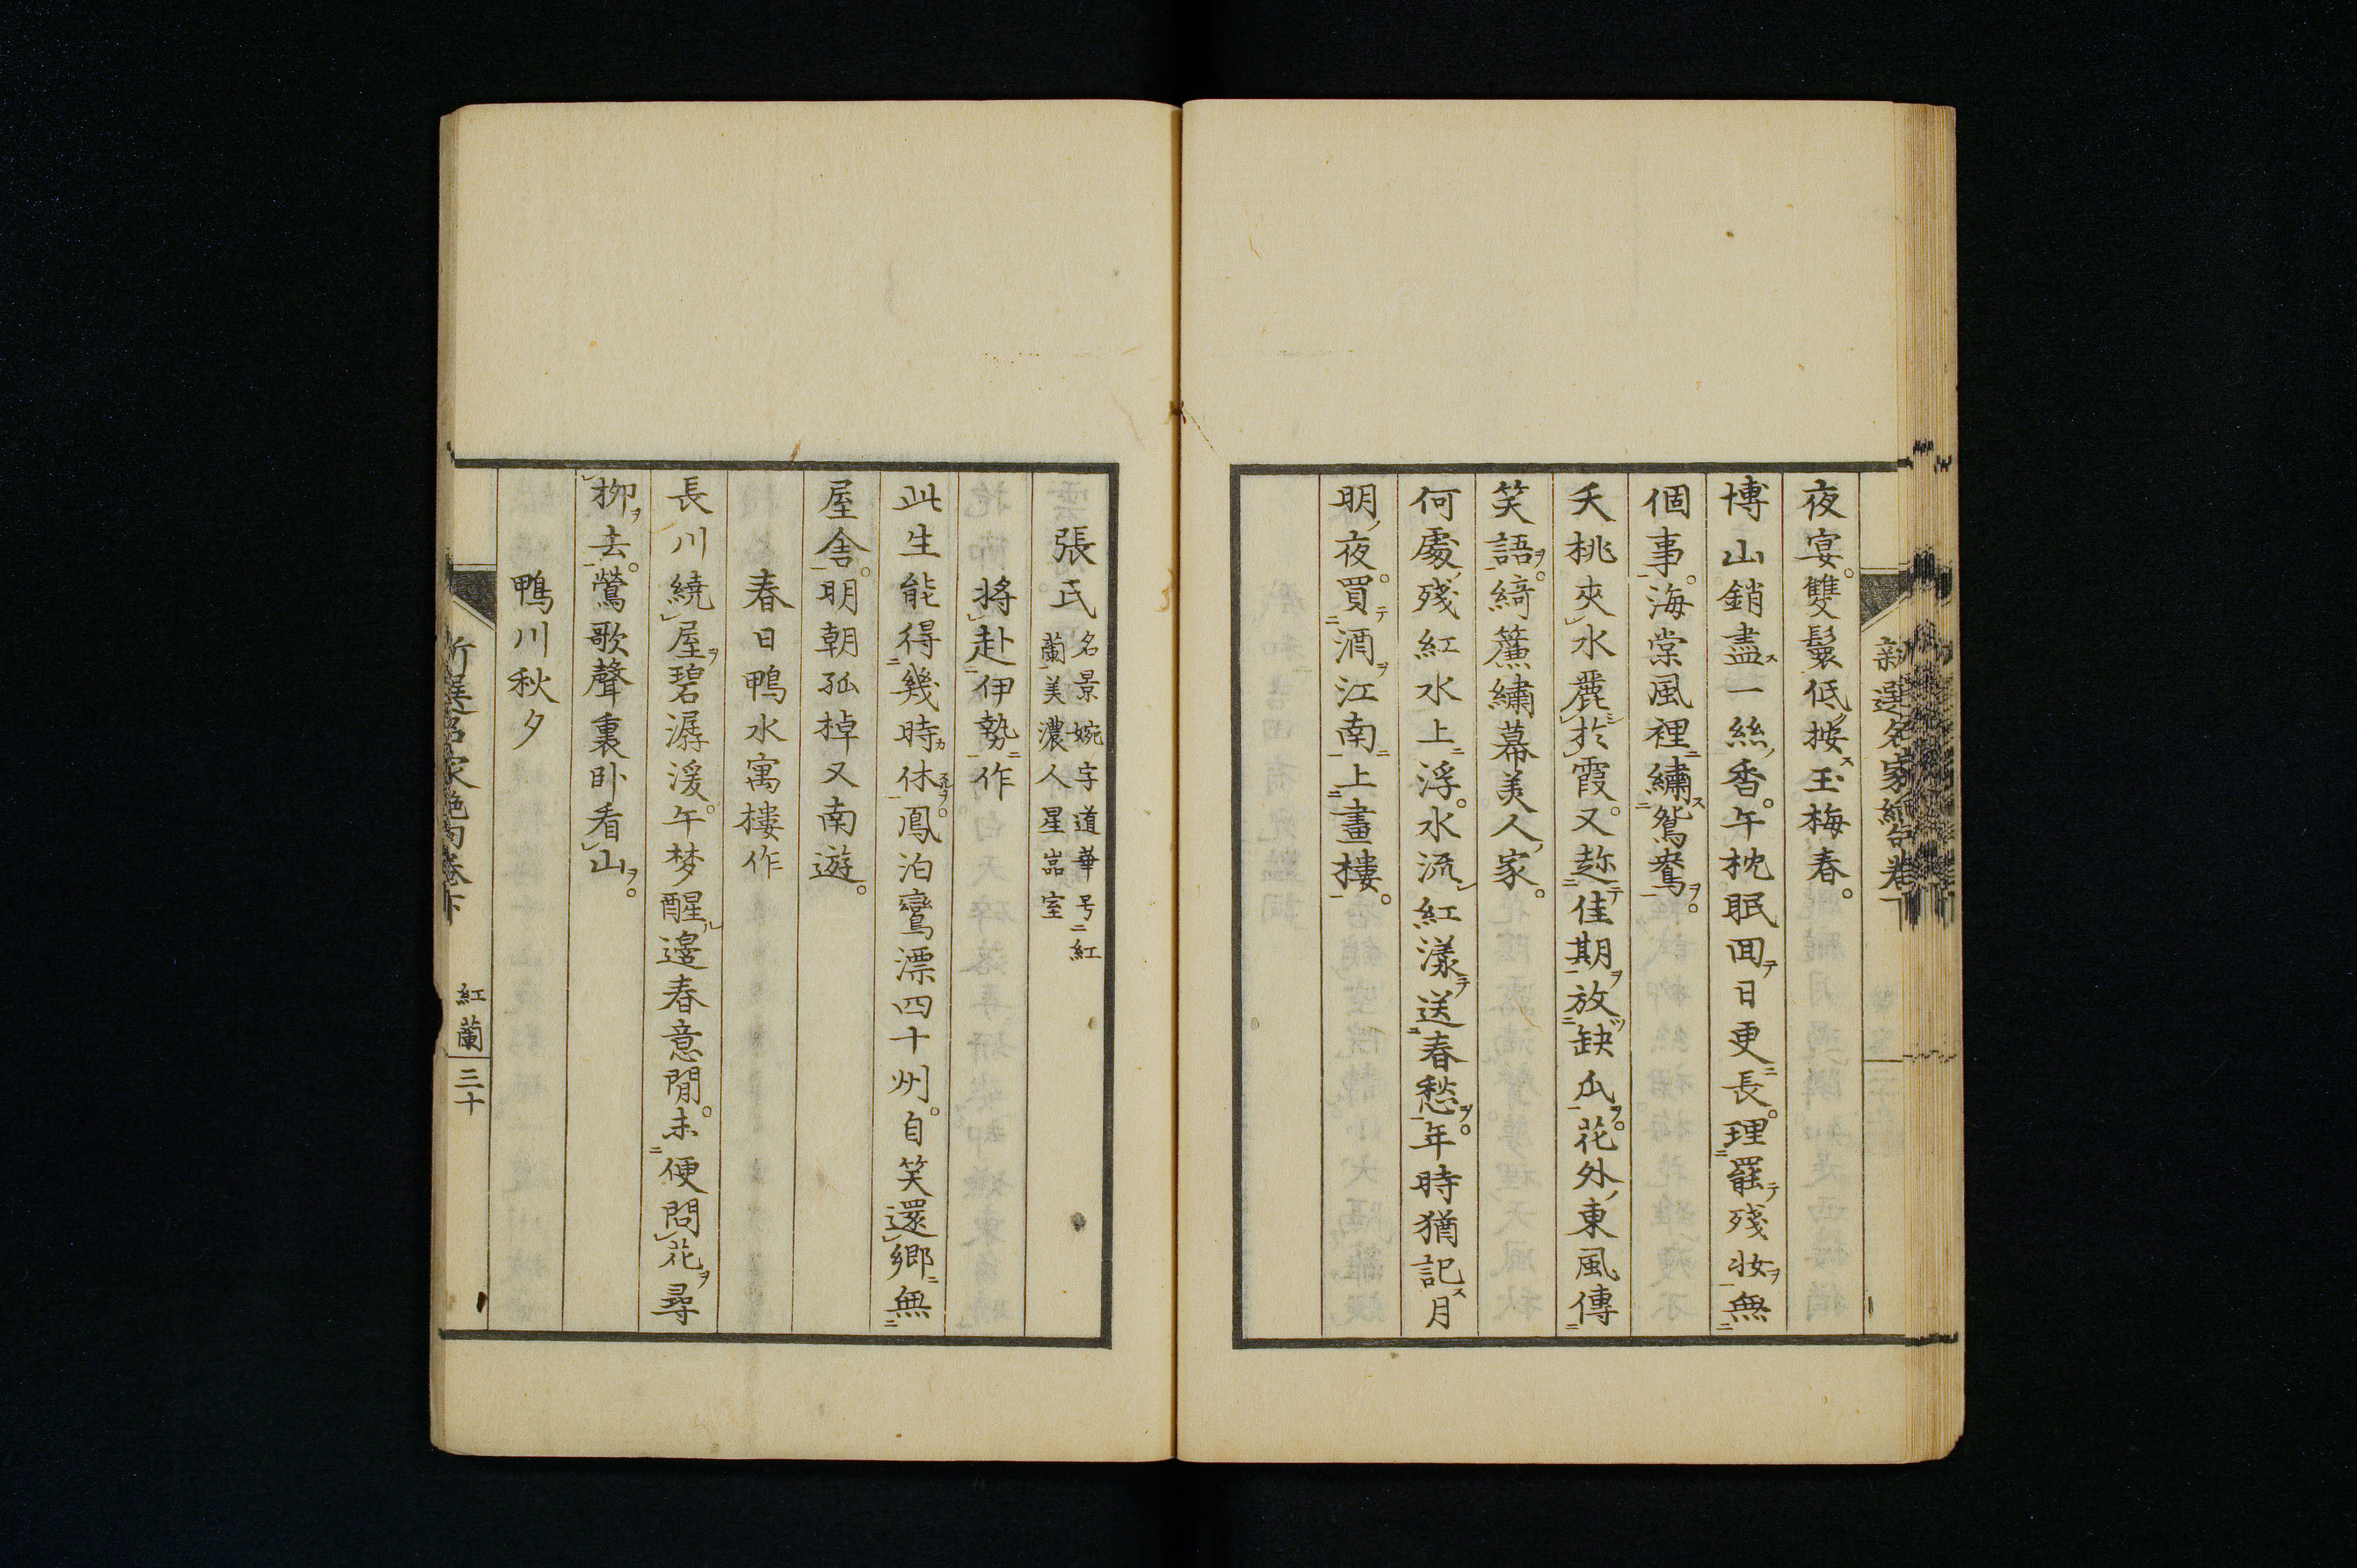 新選名家絶句卷下
夜宴。雙鬟低按玉梅春。
博山銷盡一絲香。午枕眠回日更長。理罷殘妝無
個事。海棠風裡繡鴛鴦。
夭桃夾水麗於霞。又趂佳期放缺瓜。花外東風傳
笑語。綺簾繡幕美人家。
何處殘紅水上浮。水流紅漾送春愁。年時猶記月
明夜。買酒江南上畫樓。
張氏
名景婉字道華号紅
蘭美濃人星嵓室
將赴伊勢作
此生能得幾時休。鳳泊鸞漂四十州。自笑還鄉無
屋舍。明朝孤棹又南遊。
春日鴨水寓樓作
長川繞屋碧潺湲。午梦醒邊春意閒。未便問花尋
柳去。鶯歌聲裏卧看山。
鴨川秋夕
新選名家絶句卷下
紅蘭
三十